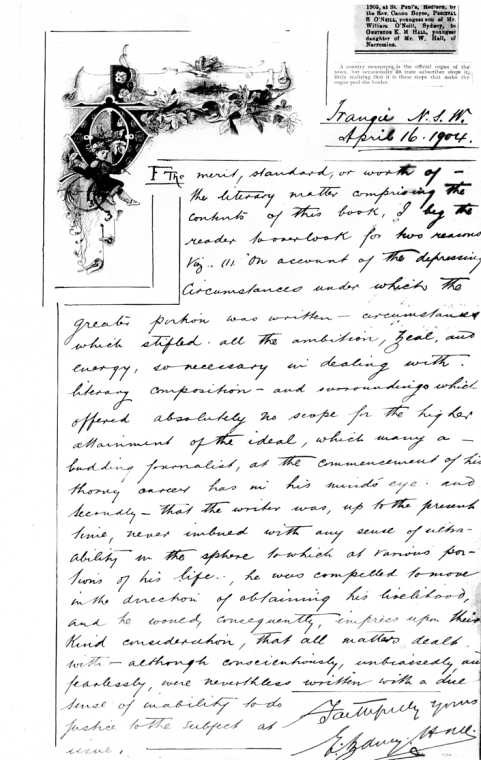 1905, at St. Paul's, Redfern, by
the Rev. Canon Boyce, PERCIVAL
S. O'NEILL, youngest son of Mr.
William O'Neill, Sydney, to
GERTRUDE K. M. HALL, youngest
daughter of Mr. W. Hall, of
Narromine.
A country newspaper is the official organ of the
town, but occasionally an irate subscriber stops it,
little realising that it is these stops that make the
organ peal the louder.
Trangie N.S.W.
April 16. 1904.
OF The merit, standard, or worth of –
the literary matter comprising the
contents of this book, I beg the
reader to overlook for two reasons
Viz.. (1). On account of the depressing
Circumstances under which the
greater portion was written – circumstances
which stifled all the ambition, zeal, and
energy, so necessary in dealing with
literary composition – and surroundings which
offered absolutely no scope for the higher
attainment of the ideal, which many a –
budding journalist, at the commencement of his
thorny career has in his mind's eye. and
Secondly – that the writer was, up to the present
time, never imbued with any sense of ultra-
ability in the sphere to which at various por-
tions of his life.., he was compelled to move
in the direction of obtaining his livelihood,
and he would, consequently, impress upon their
Kind consideration, that all matters dealt
with – although conscientiously, unbiassedly, and
fearlessly, were nevertheless written with a due
sense of inability to do
justice to the subject at
issue.
Faithfully yours
Sydney Hall.